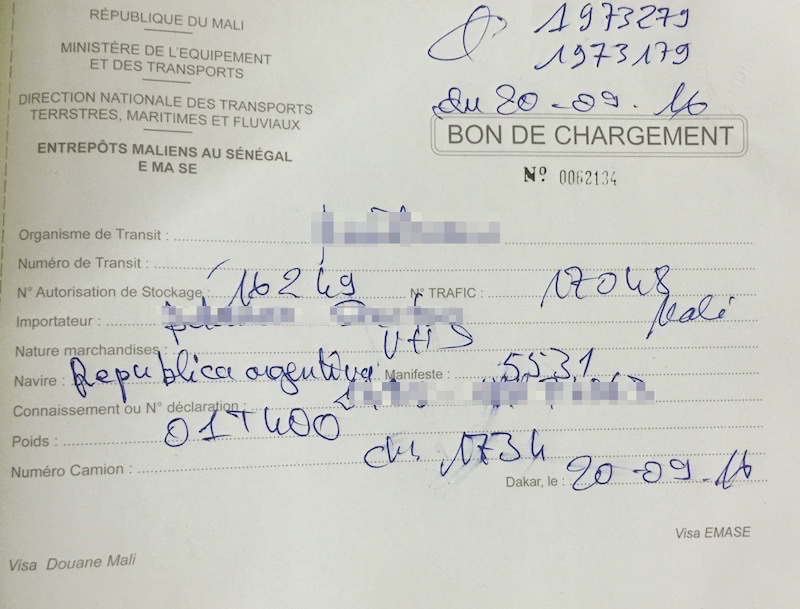 RÉPUBLIQUE DU MALI
MINISTÈRE DE L'EQUIPEMENT
ET DES TRANSPORTS
DIRECTION NATIONALE DES TRANSPORTS
TERRSTRES, MARITIMES ET FLUVIAUX
ENTREPÔTS MALIENS AU SÉNÉGAL
E MA SE
1973279
1973179
du 20-09.16
BON DE CHARGEMENT
Nº 0062134
Organisme de Transit :
Numéro de Transit :
N° Autorisation de Stockage : 16249 N° TRAFIC : 17048
Importateur : Mali
Nature marchandises :
Navire : Republica argentina Manifeste : 5531
Connaissement ou N° déclaration :
Poids : 01T400
Numéro Camion : 1734
Dakar, le : 20-09.16
Visa EMASE
Visa Douane Mali